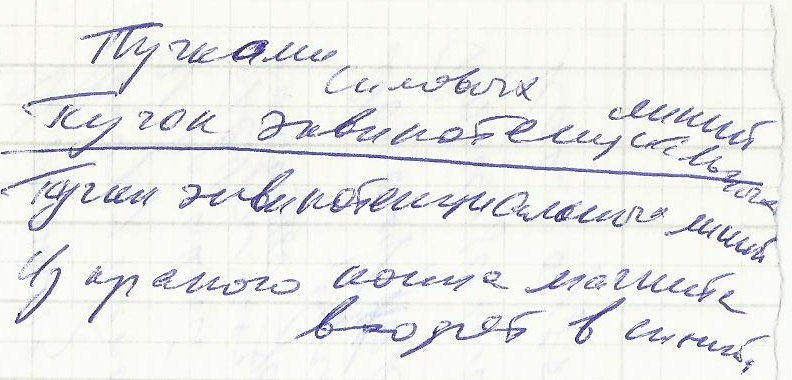 Пучками
силовых линий
Пучок эквипотенциальных
Пучки эквипотенциальных линий
Из красного конца магнита
входят в синий,